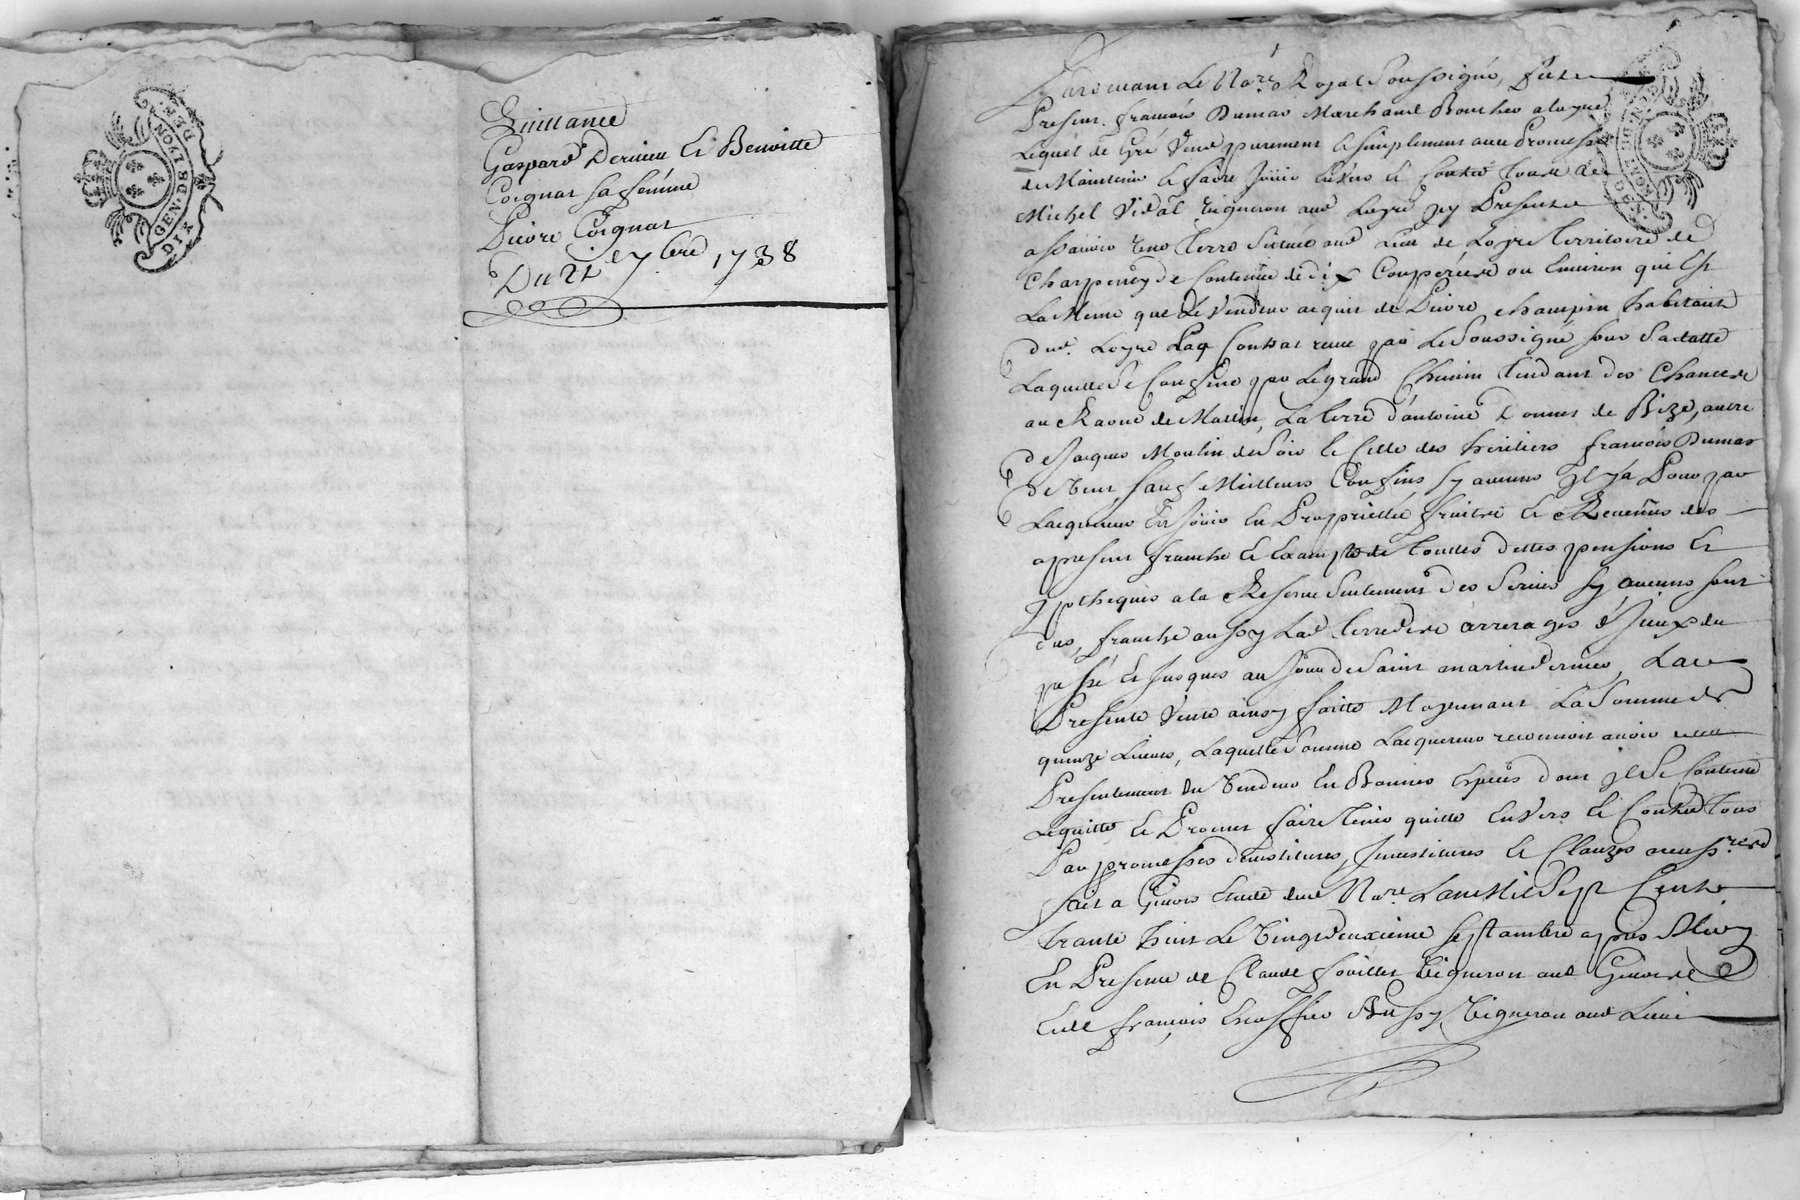 GEN. DE LYON
DIX DEN.
Quittance
Gaspard Derieu Et Benoitte
Coignat sa femme
Pierre Coignat
Du 21e 7bre 1738
Pardevant Le Nore Royal Soussigné, fut
Present françois Dumas Marchand Boucher a Loyre
Lequel de Gré Vend purement et simplement avec Promesse
de Maintenir et faire Joüir Envers et Contre Tous a
Michel Vidal Vigneron aud Loyre Jcy Present
assavoir Une Terre Située aud Lieu de Loyre Territoire de
Charpeney de Contenüe de dix Coupées ou Environ qui Est
La Même que Le Vendeur acquit de Pierre champin habitant
dud. Loyre Par Contrat receu par Le Soussigné sous Sa datte
Laquelle Se Confine par Le grand Chemin Tendant des
au de La Terre d'antoine de Bize, autre
de Jacques Moulin de Soir et Celle des héritiers françois Dumas
de Vent, sauf Meilleurs Confins sy aucuns Jl y a Pour par
Lacquereur En Joüir En Proprietté fruits et Revenus des
apresent franche et Exempte de Touttes dettes pensions Et
ypotheques a la Reserve Seulement des Servis sy aucuns sont
dus, franche aussy Lad Terre des arrerages d'Jceux du
passé Et Jusques au Jour de Saint martin dernier, La
Presente Vente ainsy faitte Moyennant La Somme de
quinze Livres, Laquelle Somme Lacquereur reconnoit avoir
Presentement du Vendeur En Bonnes Espèces dont Jl Se Contente
Lequitte et Promet faire Tenir quitte Envers et Contre Tous
Par promesses devestitures, Jnvestitures et Clauzes necessres
fait a Givors Etude dud Nore. L'an Mil Sept Cents
trante huit Le Vingtdeuxieme septambre apres Midy
En Presence de Claude Vigneron aud Givors
Et de françois Bussy Vigneron aud Lieu